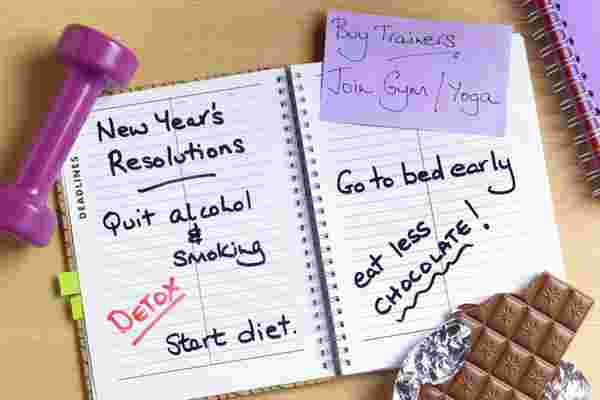 Buy Trainers
Join Gym/Yoga
DEADLINES
New Year's
Resolutions
Quit alcohol
&
smoking
DETOX
Start diet.
Go to bed early
eat less
CHOCOLATE!